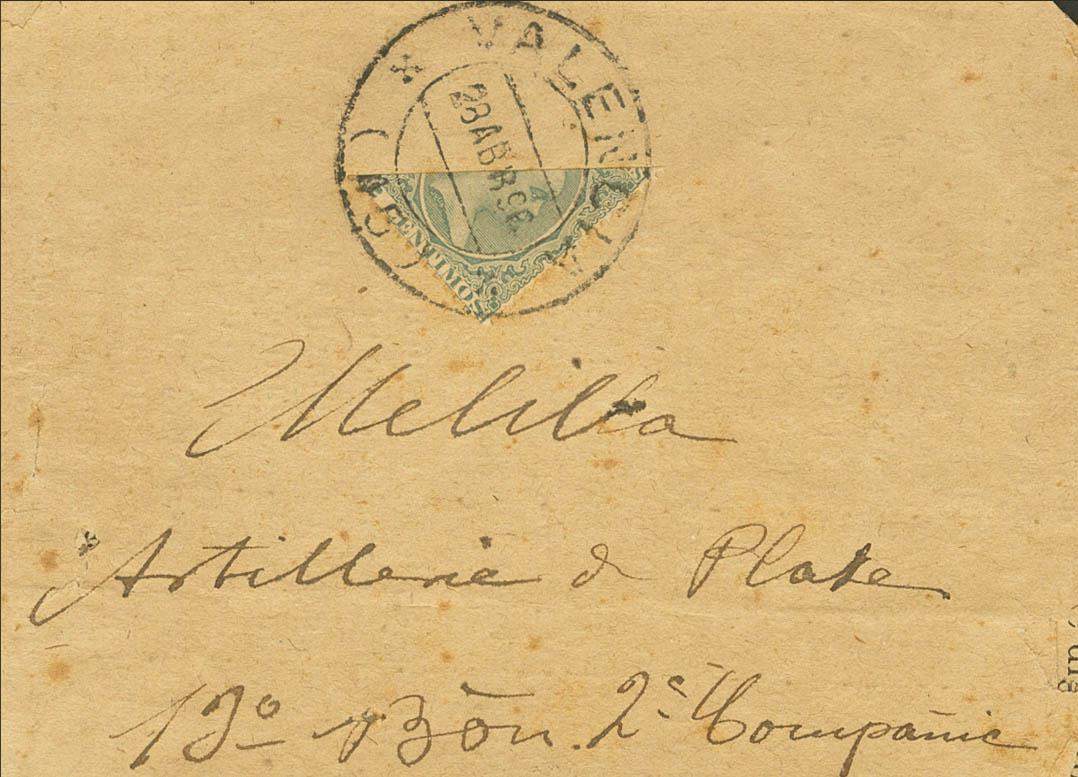 VALENCIA
28 ABR 96
CENTIMOS
Melilla
Artilleria d Plaza
13º Bōn. 2ª Compañia